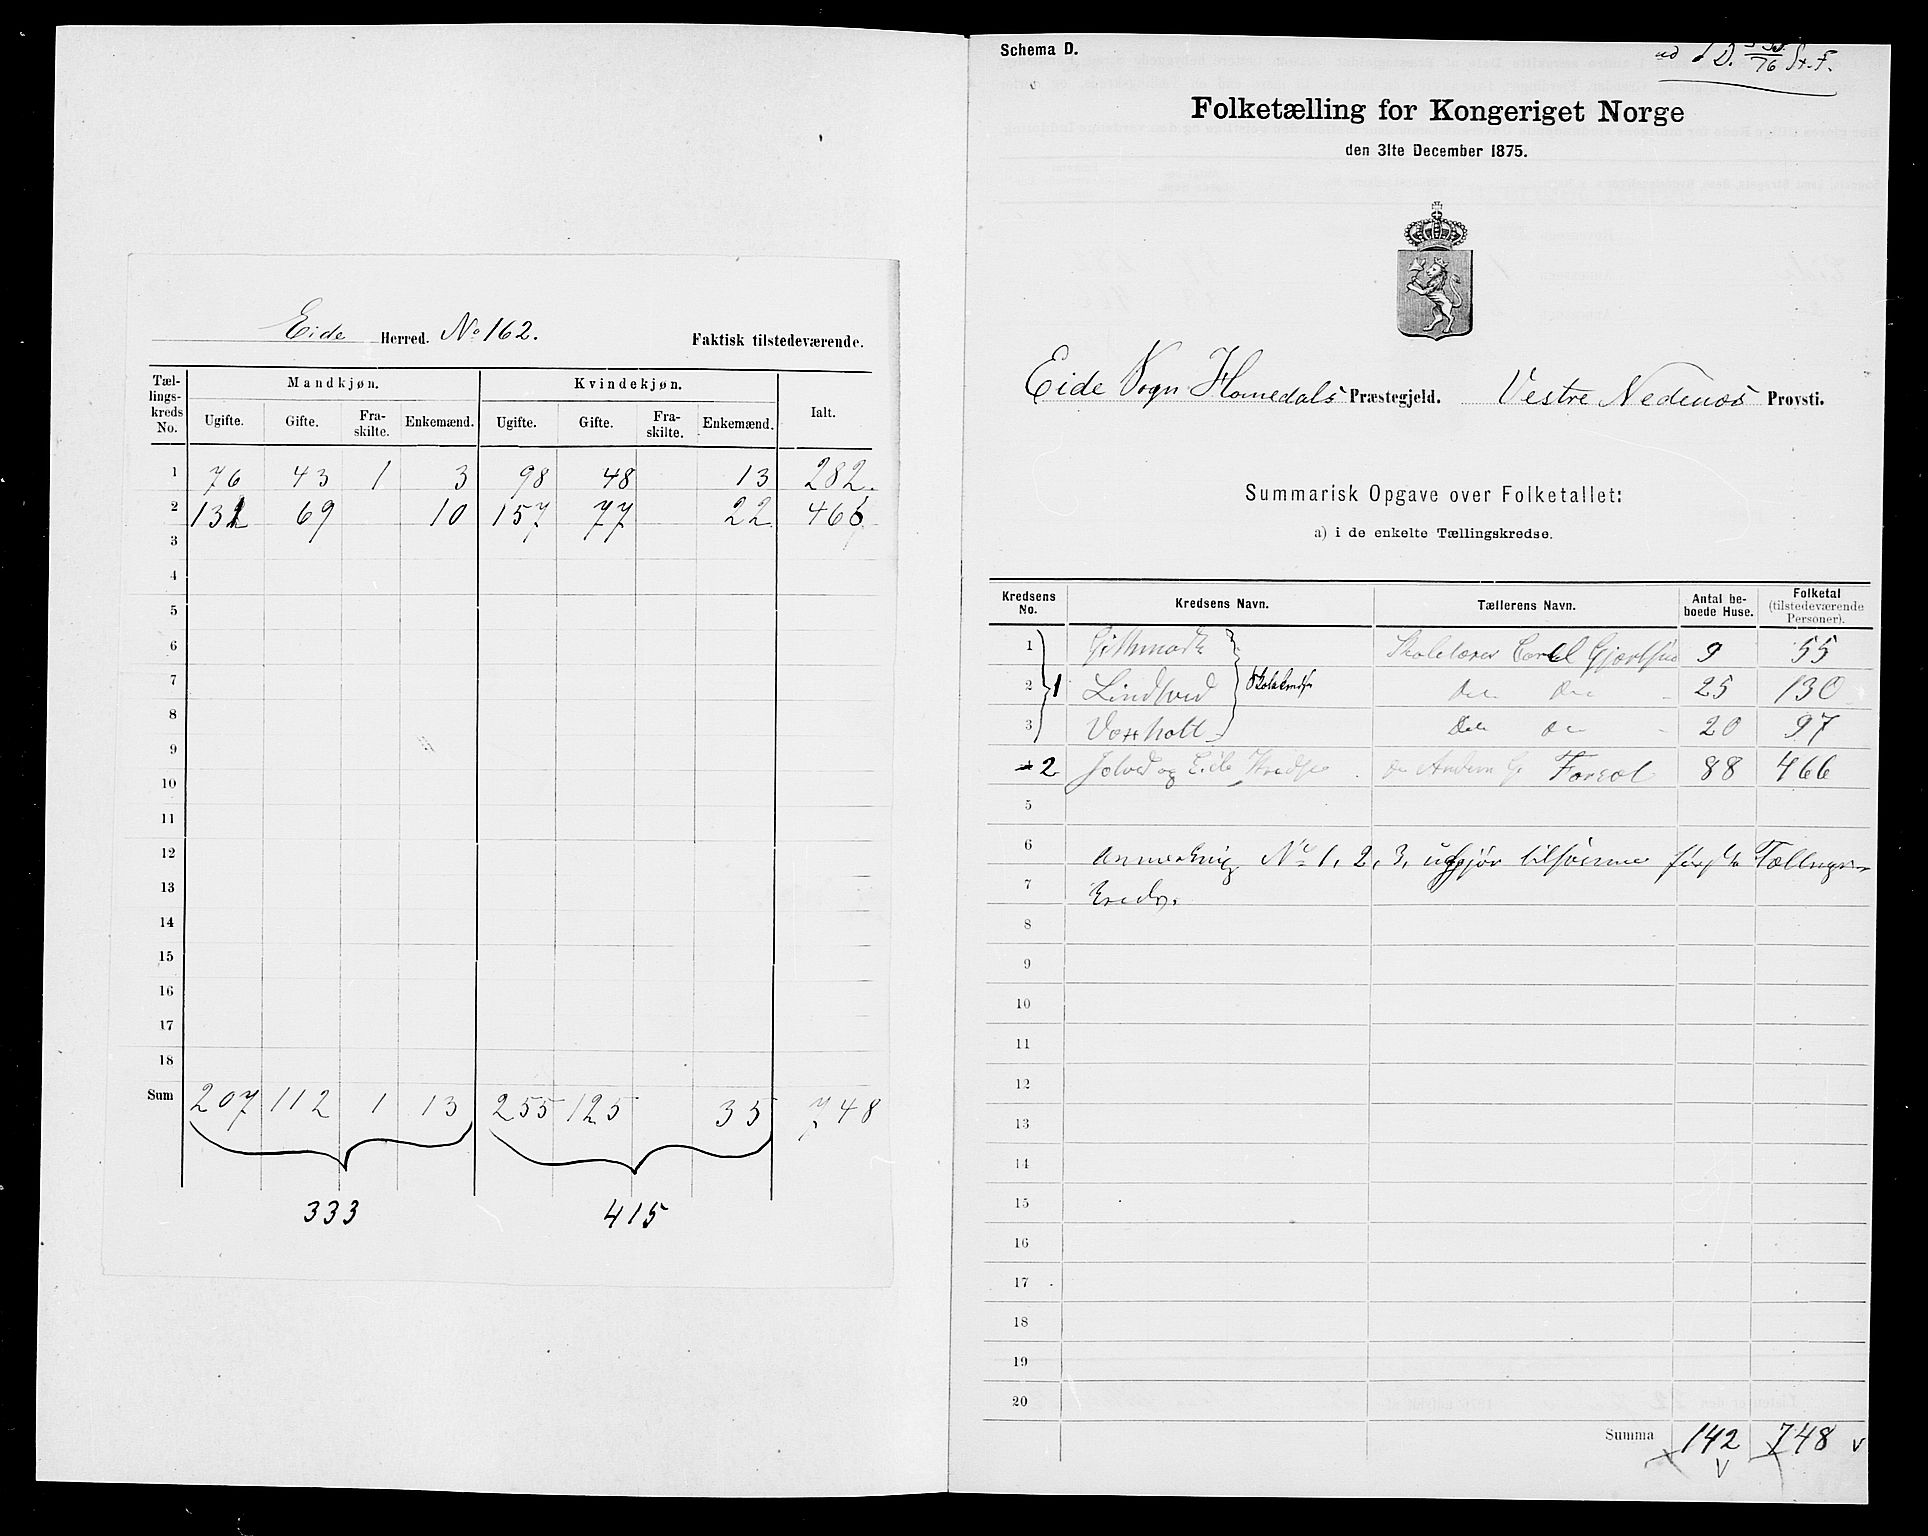 Eide Herred. No 162. Faktisk tilstedeværende.
Tællingskreds No. Mandkjøn. Kvindekjøn. Ialt.
Ugifte. Gifte. Fraskilte. Enkemænd. Ugifte. Gifte. Fraskilte. Enkemænd.
1 76 43 1 3 98 48 13 282.
2 131 69 10 157 77 22 466
3
4
5
6
7
8
9
10
11
12
13
14
15
16
17
18
Sum 207 112 1 13 255 125 35 748
333 415
Schema D.
D. 76 St. F.
Folketælling for Kongeriget Norge
den 31te December 1875.
Eide Sogn Homedals Præstegjeld. Vestre Nedenæs Provsti.
Summarisk Opgave over Folketallet:
a) i de enkelte Tællingskredse.
Kredsens No. Kredsens Navn. Tællerens Navn. Antal beboede Huse. Folketal (tilstedeværende Personer).
1 Skolelærer Carl 9 55
2 1 Lindtved 25 130
3 Voxholt 20 97
2 og Eide Kredse 88 466
5
6 Anmerkning No 1, 2, 3, udgjør tilsammen første Tællings-
7 Kreds.
8
9
10
11
12
13
14
15
16
17
18
19
20
Summa 142 748